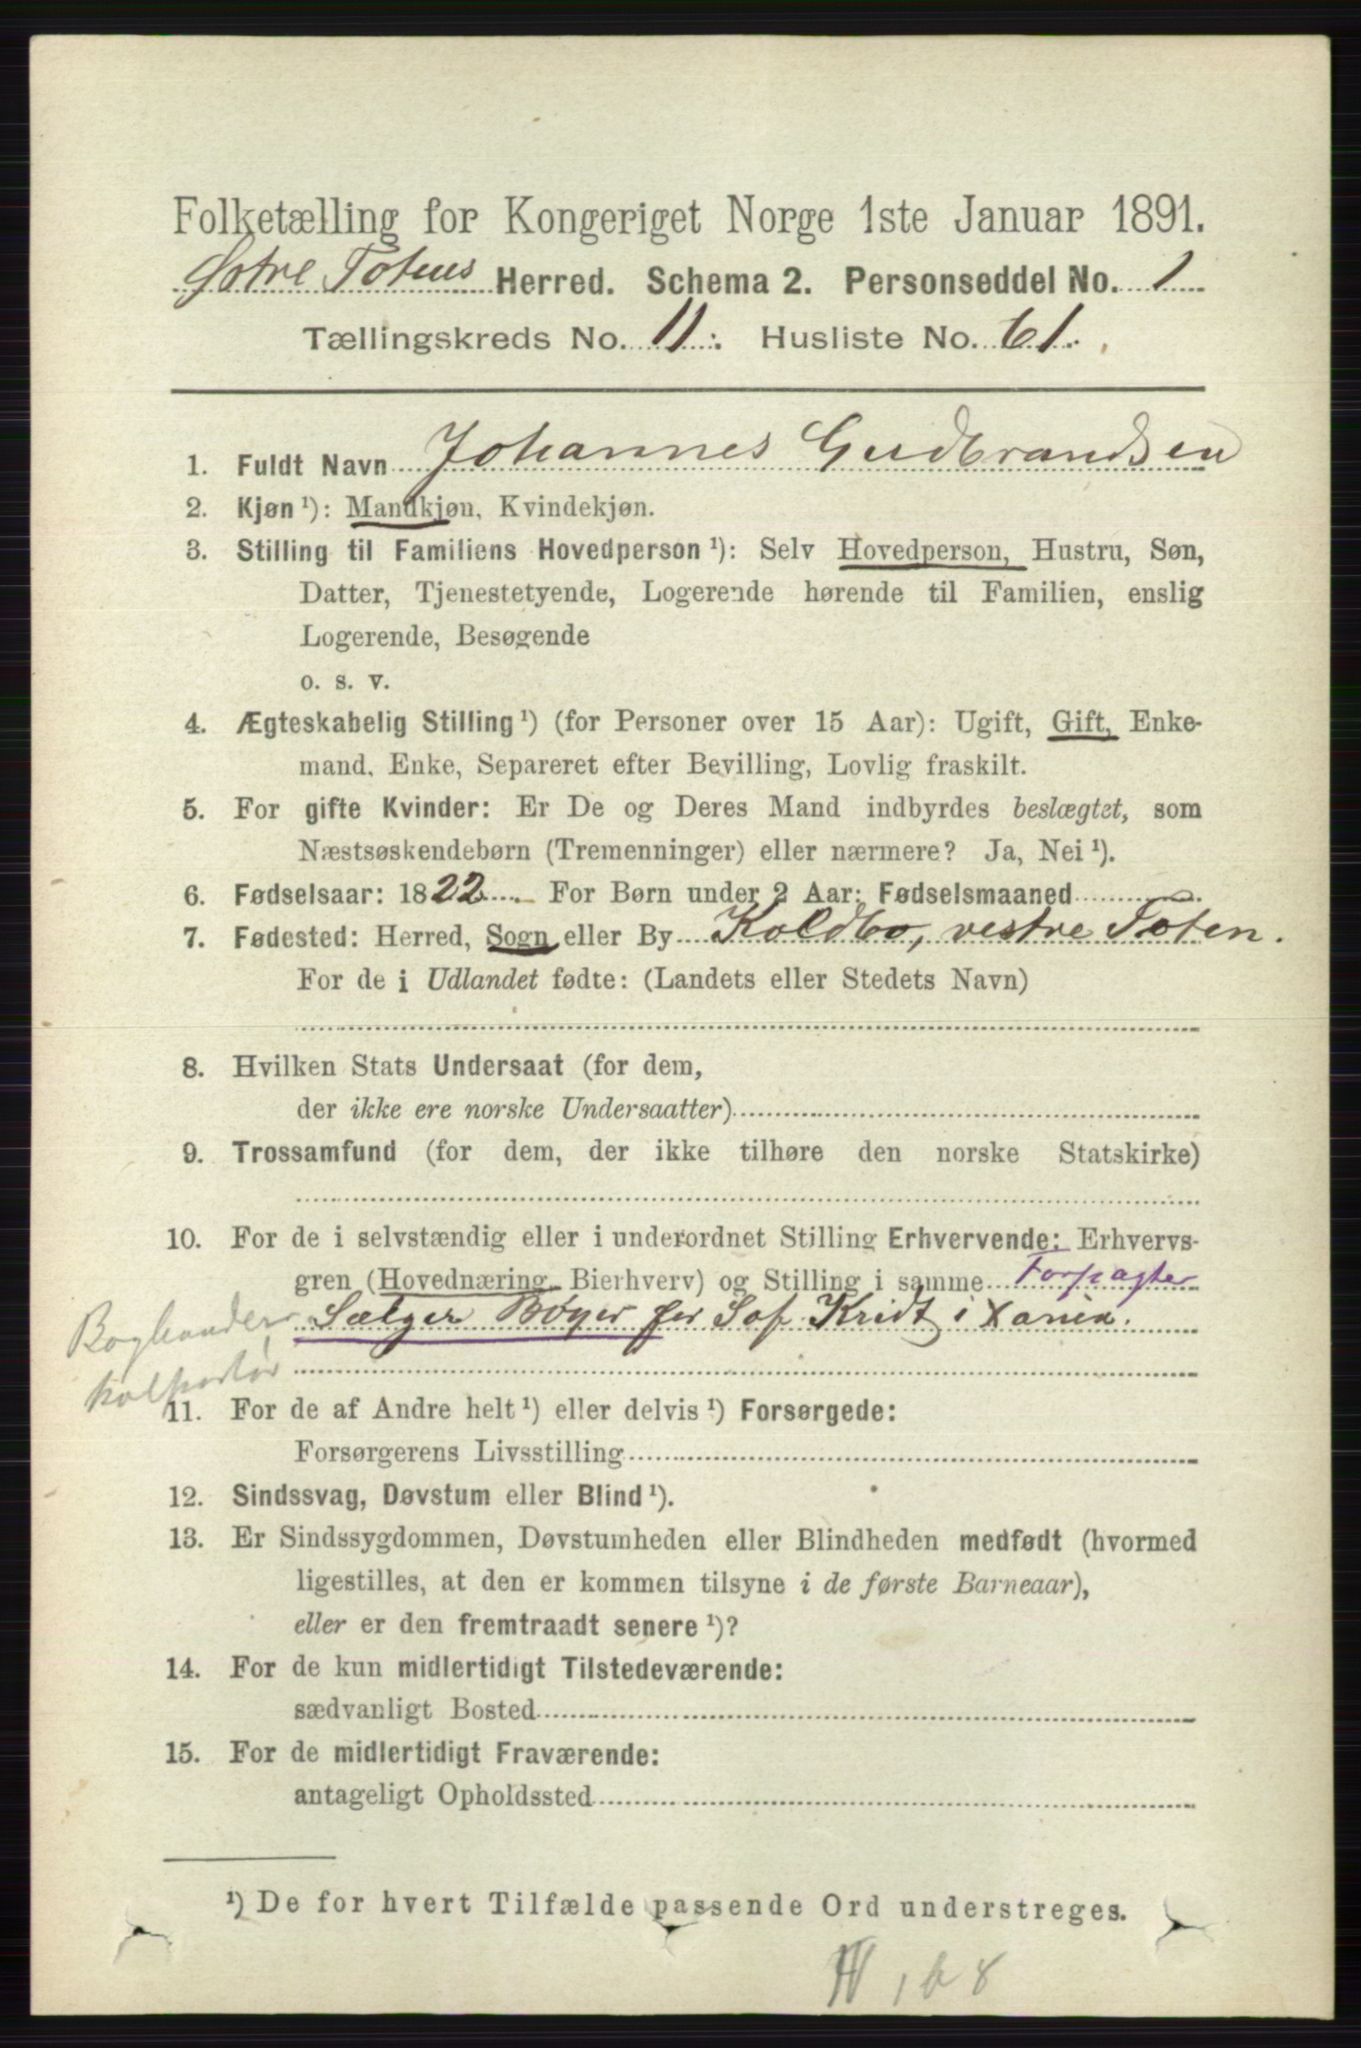 Folketælling for Kongeriget Norge 1ste Januar 1891.
Østre Totens Herred. Schema 2. Personseddel No. 1
Tællingskreds No. 11. Husliste No. 61.
1. Fuldt Navn Johannes Gudbrandsen
2. Kjøn ¹): Mandkjøn, Kvindekjøn.
3. Stilling til Familiens Hovedperson ¹): Selv Hovedperson, Hustru, Søn,
Datter, Tjenestetyende, Logerende hørende til Familien, enslig
Logerende, Besøgende
o. s. v.
4. Ægteskabelig Stilling ¹) (for Personer over 15 Aar): Ugift, Gift, Enke-
mand, Enke, Separeret efter Bevilling, Lovlig fraskilt.
5. For gifte Kvinder: Er De og Deres Mand indbyrdes beslægtet, som
Næstsøskendebørn (Tremenninger) eller nærmere? Ja, Nei ¹).
6. Fødselsaar: 1822. For Børn under 2 Aar: Fødselsmaaned
7. Fødested: Herred, Sogn eller By Koldbo, vestre Toten.
For de i Udlandet fødte: (Landets eller Stedets Navn)
8. Hvilken Stats Undersaat (for dem,
der ikke ere norske Undersaatter)
9. Trossamfund (for dem, der ikke tilhøre den norske Statskirke)
10. For de i selvstændig eller i underordnet Stilling Erhvervende: Erhvervs-
gren (Hovednæring Bierhverv) og Stilling i samme Forpagter
Boghandler Sælger Bøger for Sof. Kridt i Xania.
kolportør
11. For de af Andre helt ¹) eller delvis ¹) Forsørgede:
Forsørgerens Livsstilling
12. Sindssvag, Døvstum eller Blind ¹).
13. Er Sindssygdommen, Døvstumheden eller Blindheden medfødt (hvormed
ligestilles, at den er kommen tilsyne i de første Barneaar),
eller er den fremtraadt senere ¹)?
14. For de kun midlertidigt Tilstedeværende:
sædvanligt Bosted
15. For de midlertidigt Fraværende:
antageligt Opholdssted
¹) De for hvert Tilfælde passende Ord understreges.